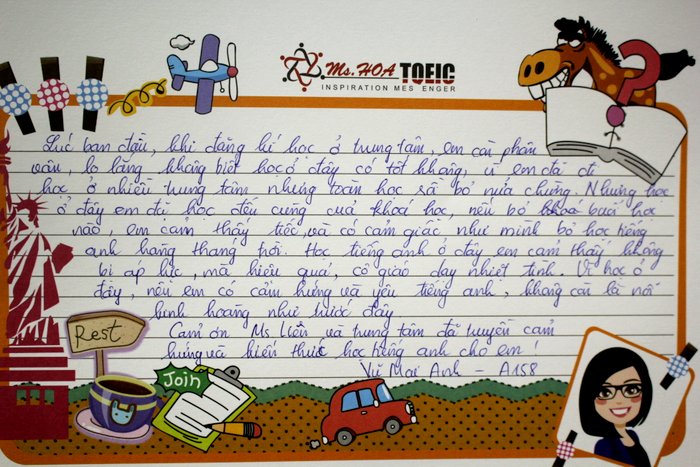 Ms.HOA TOEIC
INSPIRATION MES ENGER
?
Lúc ban đầu, khi đăng kí học ở trung tâm, em còn phân
vân, lo lắng không biết học ở đây có tốt không, vì em đã đi
học ở nhiều trung tâm nhưng toàn học rồi bỏ nửa chừng. Nhưng học
ở đây em đi học đến cùng của khoá học, nếu bỏ buổi học
nào, em cảm thấy tiếc, và có cảm giác như mình bỏ học tiếng
anh hàng tháng trời. Học tiếng anh ở đây em cảm thấy không
bị áp lực, mà hiệu quả, cô giáo dạy nhiệt tình. Vì học ở
đây, nên em có cảm hứng và yêu tiếng anh, không còn là nỗi
kinh hoàng như trước đây
Cảm ơn Ms Liên và trung tâm đã truyền cảm
hứng và kiến thức học tiếng anh cho em!
Vũ Mai Anh - A158
Rest
Join